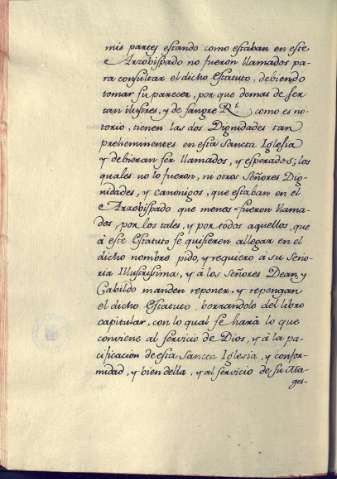 mis partes estando como estaban en este
Arzobispado no fueron llamados pa-
ra consultar el dicho Estatuto, debiendo
tomar su parecer, por que demas de ser
tan Ilustres, y de sangre Rl. como es no-
torio, tienen las dos Dignidades tan
preheminentes en esta Sancta Iglesia
y debieran ser llamados, y esperados; los
quales no lo fueron, ni otros Señores Dig-
nidades, y Canonigos, que estaban en el
Arzobispado que menos fueron llama-
dos, por los tales, y por todos aquellos, que
á este Estatuto se quisieren allegar en el
dicho nombre pido, y requiero á su Seño-
ria Illustrissima, y á los Señores Dean, y
Cabildo manden reponer, y repongan
el dicho Estatuto, borrandolo del libro
capitular, con lo qual se hará lo que
conviene al servicio de Dios, y á la pa-
cificacion de esta Sancta Iglesia, y confor-
midad, y bien della, y al servicio de su Ma-
ges-